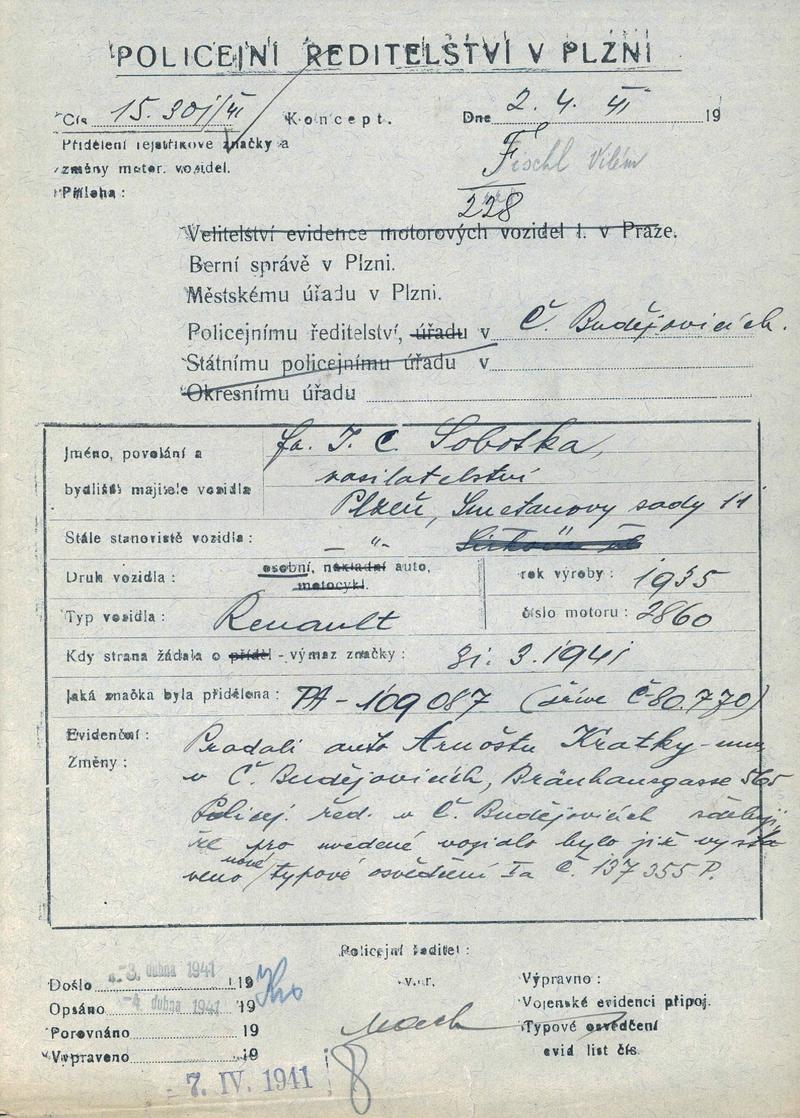 POLICEJNÍ ŘEDITELSTVÍ V PLZNI
Čís. 15.301/41 Koncept. Dne 2. 4. 41 19
Přidělení rejstříkové značky a
změny motor. vozidel.
Příloha:
F
Fischl Vilém
228
Velitelství evidence motorových vozidel I. v Praze.
Berní správě v Plzni.
Městskému úřadu v Plzni.
Policejnímu ředitelství, úřadu v Č. Budějovicích.
Státnímu policejnímu úřadu v
Okresnímu úřadu
Jméno, povolání a
bydliště majitele vozidla
fa. J. C. Sobotka,
zasilatelství
Plzeň, Smetanovy sady 11
Stálé stanoviště vozidla: — "-
Druh vozidla: osobní, nákladní auto,
motocykl.
rok výroby: 1935
Typ vozidla: Renault
číslo motoru: 2860
Kdy strana žádala o příděl - výmaz značky: 31. 3. 1941
Jaká značka byla přidělena: PA - 109087 (dříve Č-80.770)
Evidenční:
Změny:
Prodali auto Arnoštu Kratky-mu
v Č. Budějovicích, Bräuhausgasse 565
Policej. řed. v Č. Budějovicích sděluji,
že pro uvedené vozidlo bylo již vysta
veno nové typové osvědčení Ia Č. 137355 P.
Policejní ředitel:
v.r.
Došlo -3. dubna 1941 19
Opsáno -4. dubna 1941 19
Porovnáno 19
Vypraveno 19
- 7. IV. 1941
Výpravno:
Vojenské evidenci připoj.
Typové osvědčení
evid list čís.